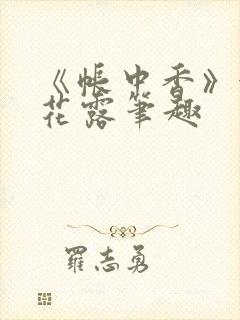 《帐中香》
花露笔趣
罗志勇